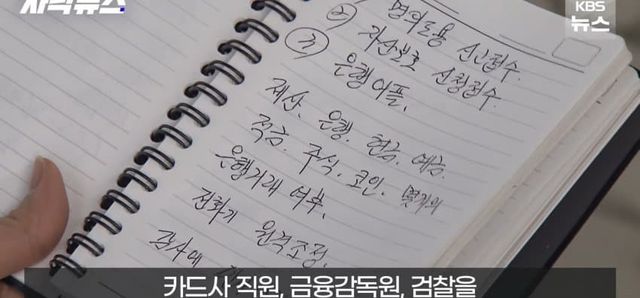 자막뉴스
KBS
뉴스
② 명의도용 신고접수.
자산보호 신청접수.
③ 은행어플.
재산. 은행. 현금. 예금.
적금. 주식. 코인. 몇개의
은행거래 여부.
전화기 원격조정.
카드사 직원, 금융감독원, 검찰을